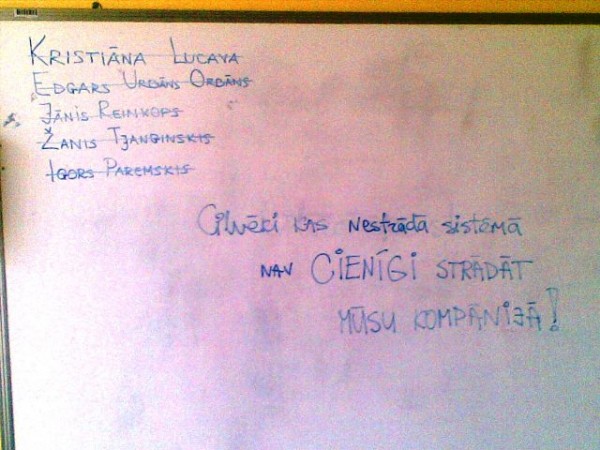 Kristiāna Lucava
Edgars Urbāns Orbāns
Jānis Reinkops
Žanis Tjanginskis
Igors Paremskis
Cilvēki kas nestrādā sistēmā
nav CIENĪGI STRĀDĀT
MŪSU KOMPĀNIJĀ!